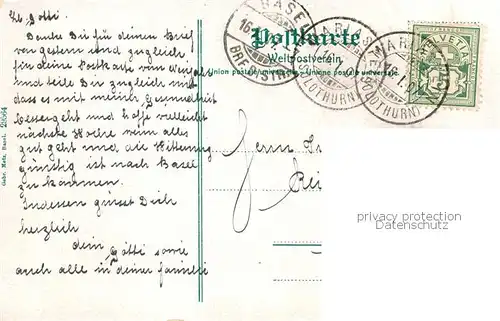 Lb. Gotti
Danke Dir für deinen Brief
von gestern und zugleich
für deine Postkarte vom
und teile Dir zugleich mit
dass es mit meiner Gesundheit
besser geht und hoffe vielleicht
nächste Woche wenn alles
gut geht und die Witterung
günstig ist nach Basel
zu kommen.
Indessen grüsst Dich
herzlich
dein Gotti sowie
auch alle in deiner familie
Gebr. Metz, Basel. 20664
Postkarte
Weltpostverein
Union postale universelle. – Unione postale universale.
BASEL
BREITE
(SOLOTHURN)
(SOLOTHURN)
HELVETIA
Herrn
privacy protection
Datenschutz